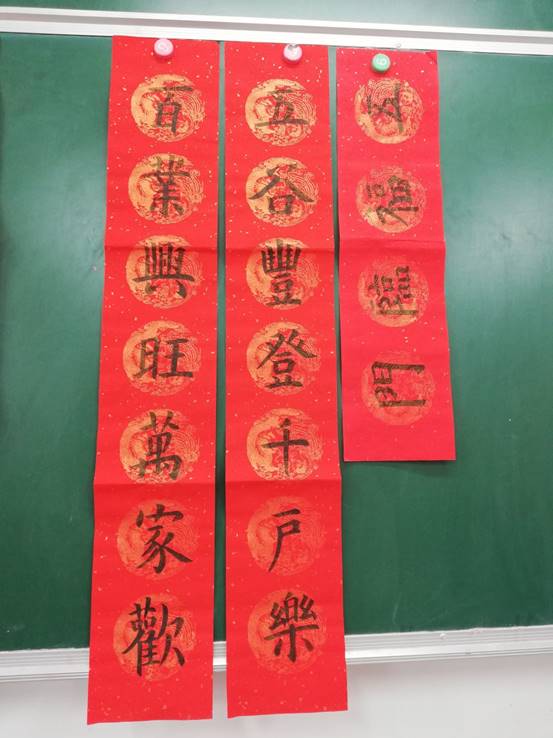 五福臨門
五谷豐登千戶樂
百業興旺萬家歡